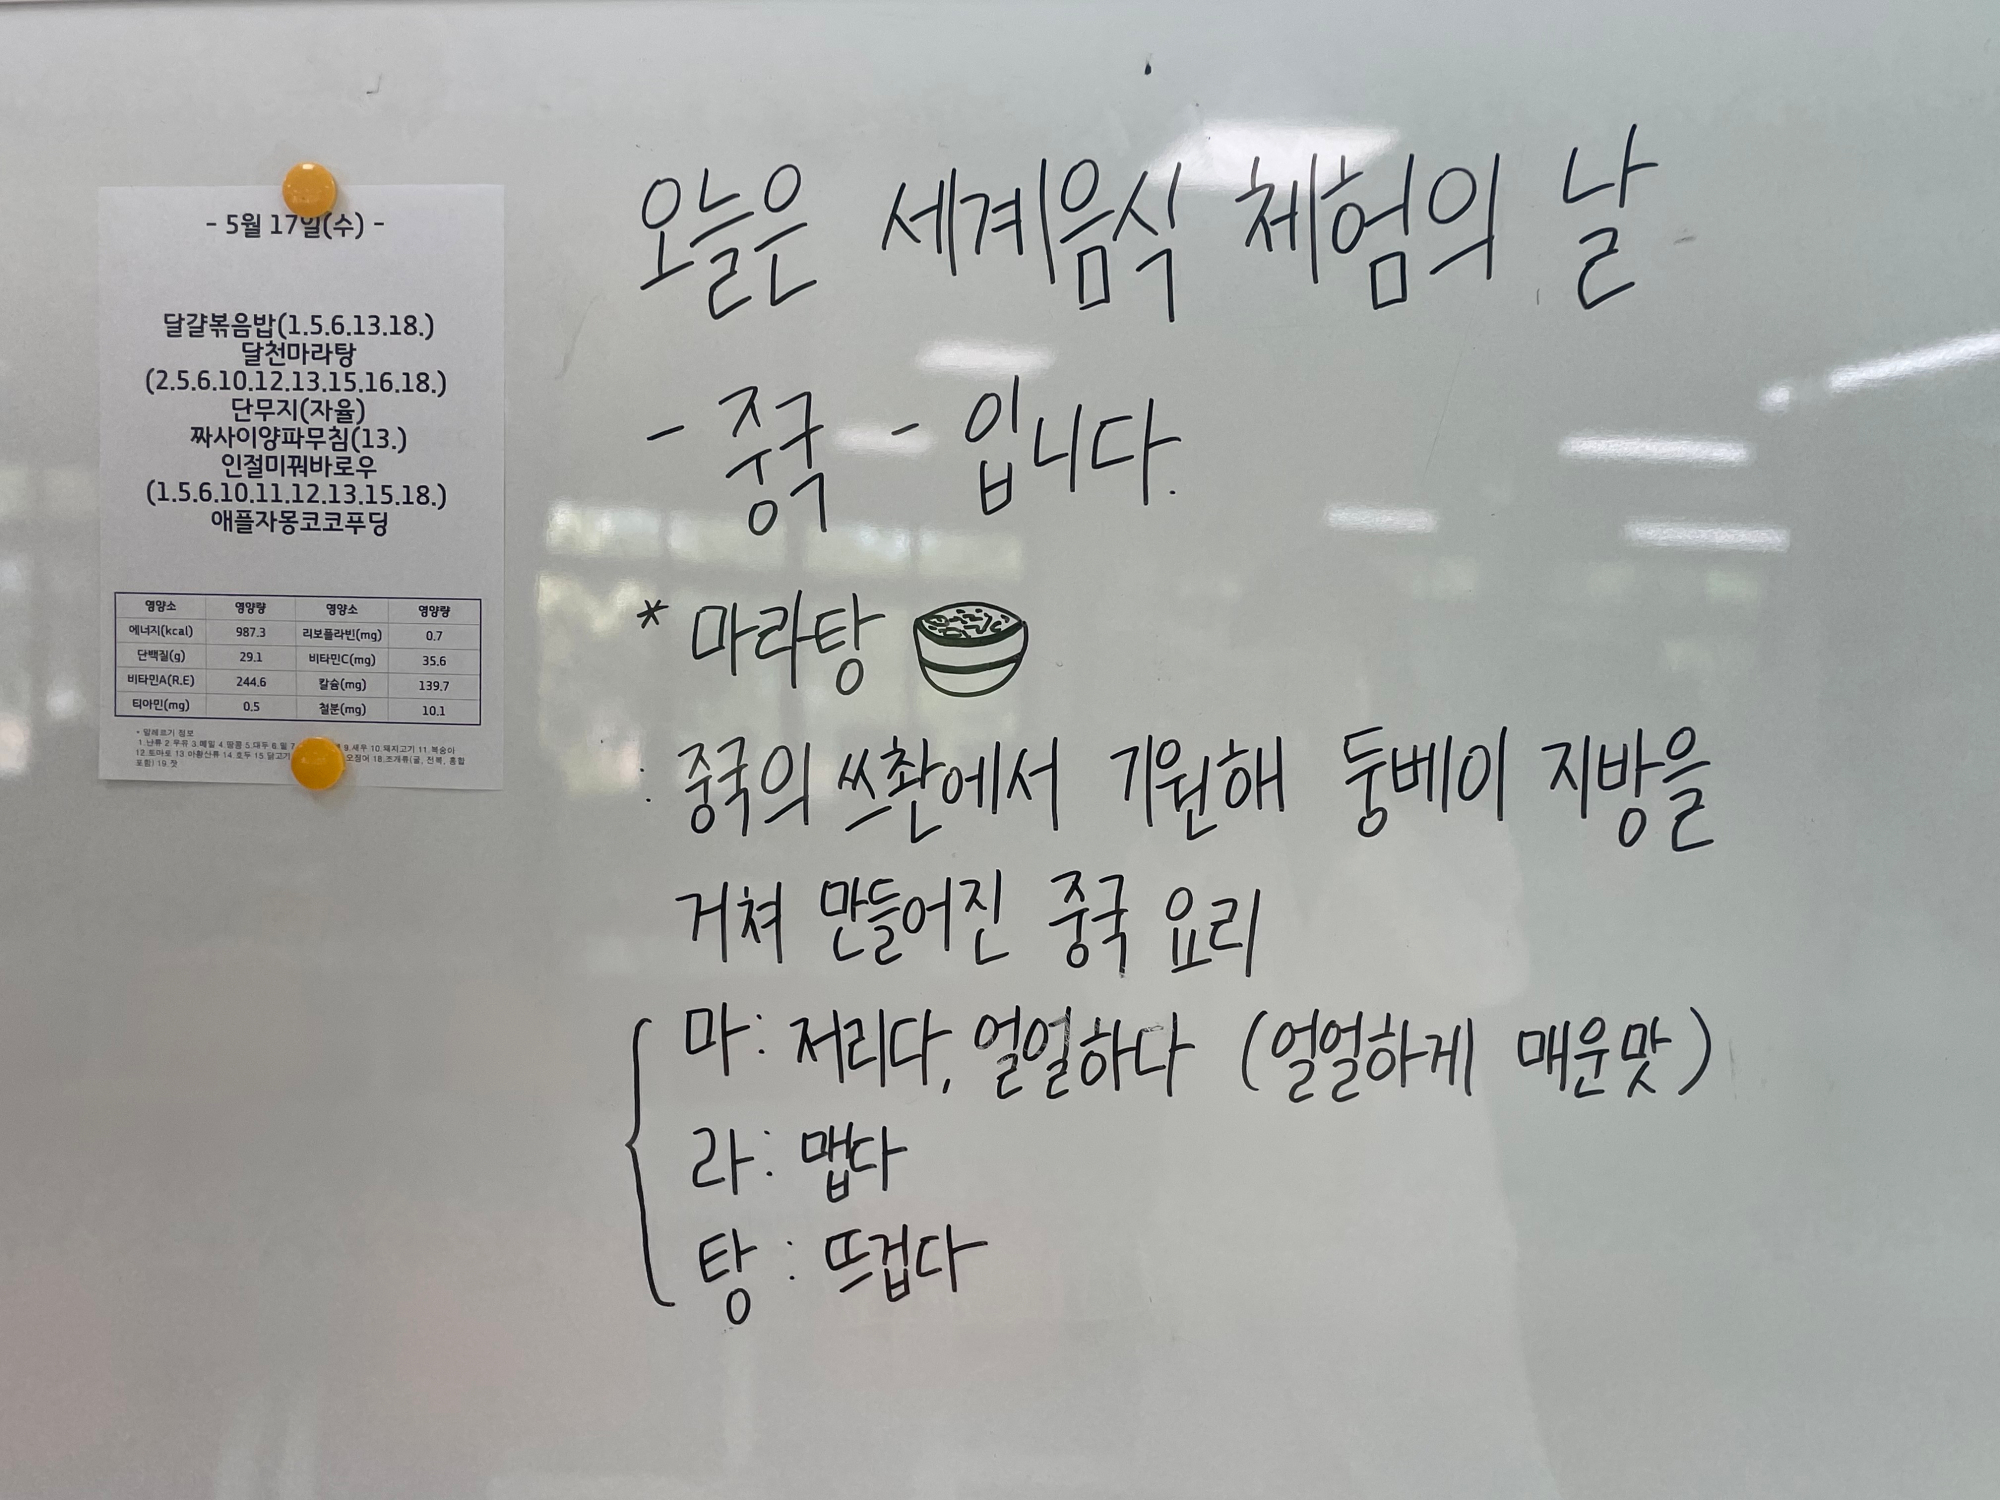 - 5월 17일(수) -
달걀볶음밥(1.5.6.13.18.)
달천마라탕
(2.5.6.10.12.13.15.16.18.)
단무지(자율)
짜사이양파무침(13.)
인절미꿔바로우
(1.5.6.10.11.12.13.15.18.)
애플자몽코코푸딩
영양소 영양량 영양소 영양량
에너지(kcal) 987.3 리보플라빈(mg) 0.7
단백질(g) 29.1 비타민C(mg) 35.6
비타민A(R.E) 244.6 칼슘(mg) 139.7
티아민(mg) 0.5 철분(mg) 10.1
* 알레르기 정보
1.난류 2.우유 3.메밀 4.땅콩 5.대두 6.밀 9.새우 10.돼지고기 11.복숭아
12.토마토 13.아황산류 14.호두 15.닭고기 오징어 18.조개류(굴, 전복, 홍합
포함) 19.잣
오늘은 세계음식 체험의 날
- 중국 - 입니다.
* 마라탕
: 중국의 쓰촨에서 기원해 둥베이 지방을
거쳐 만들어진 중국 요리
마: 저리다, 얼얼하다 (얼얼하게 매운맛)
라: 맵다
탕: 뜨겁다